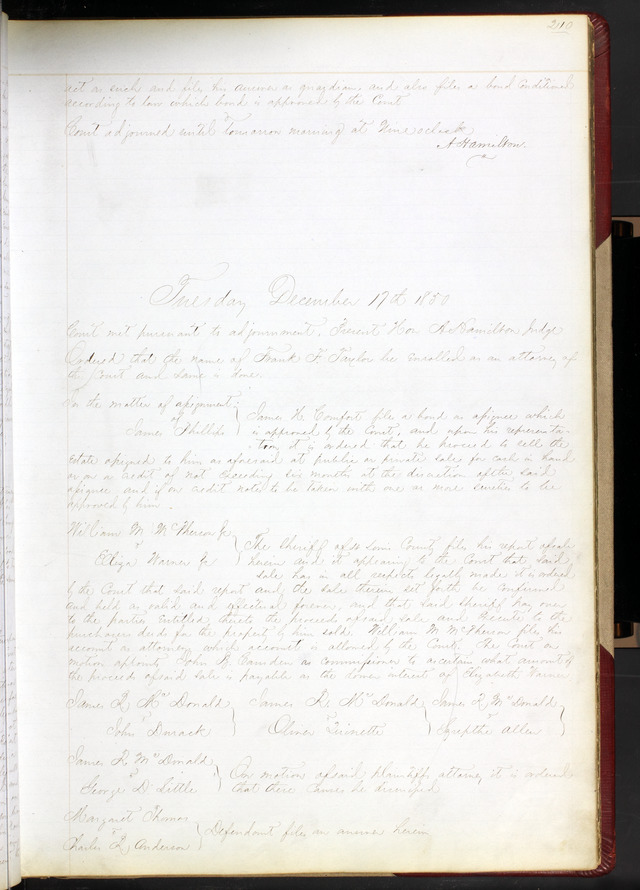 210
act as such and files his answer as guardian and also files a bond conditioned
according to law which bond is approved by the Court
Court adjourned until Tomorrow morning at Nine oclock
A Hamilton
Tuesday December 17th 1850
Court met pursuant to adjournment. Present Hon A Hamilton Judge
Ordered that the name of Frank F. Taylor be enrolled as an attorney of
the Court and same is done.
In the matter of assignment
of
James Phillips
James H. Comfort files a bond as assignee which
is approved by the Court, and upon his representa-
tion it is ordered that he proceed to sell the
Estate assigned to him as aforesaid at public or private sales for cash in hand
or on a credit of not exceeding six months at the discretion of the said
assignee and if on credit notes to be taken with one or more sureties to be
approved by him.
William M McPherson &c
vs
Eliza Warner &c
The Sheriff of St Louis County files his report of sale
herein and it appearing to the Court that said
sale has in all respects legally made it is ordered
by the Court that said report and the sale therein set forth be confirmed
and held as valid and effectual forever, and that said sheriff pay over
to the parties entitled thereto the proceeds of said sale and Execute to the
purchasers deed for the property by him sold. William M McPherson files his
account as attorney which account is allowed by the Court. The Court on
motion appoints John B. Camden as commissioner to ascertain what amount of
the proceeds of said sale is payable as the dower interest of Elizabeth Warner
James R. McDonald
vs
John Durack
James R. McDonald
vs
Oliver Quinette
James R McDonald
vs
Josephthe Allen
James R. McDonald
vs
George D Little
On motion of said plaintiffs attorney it is ordered
that these causes be dismissed
Margaret Thomas
vs
Charles L Anderson
Defendant files an answer herein